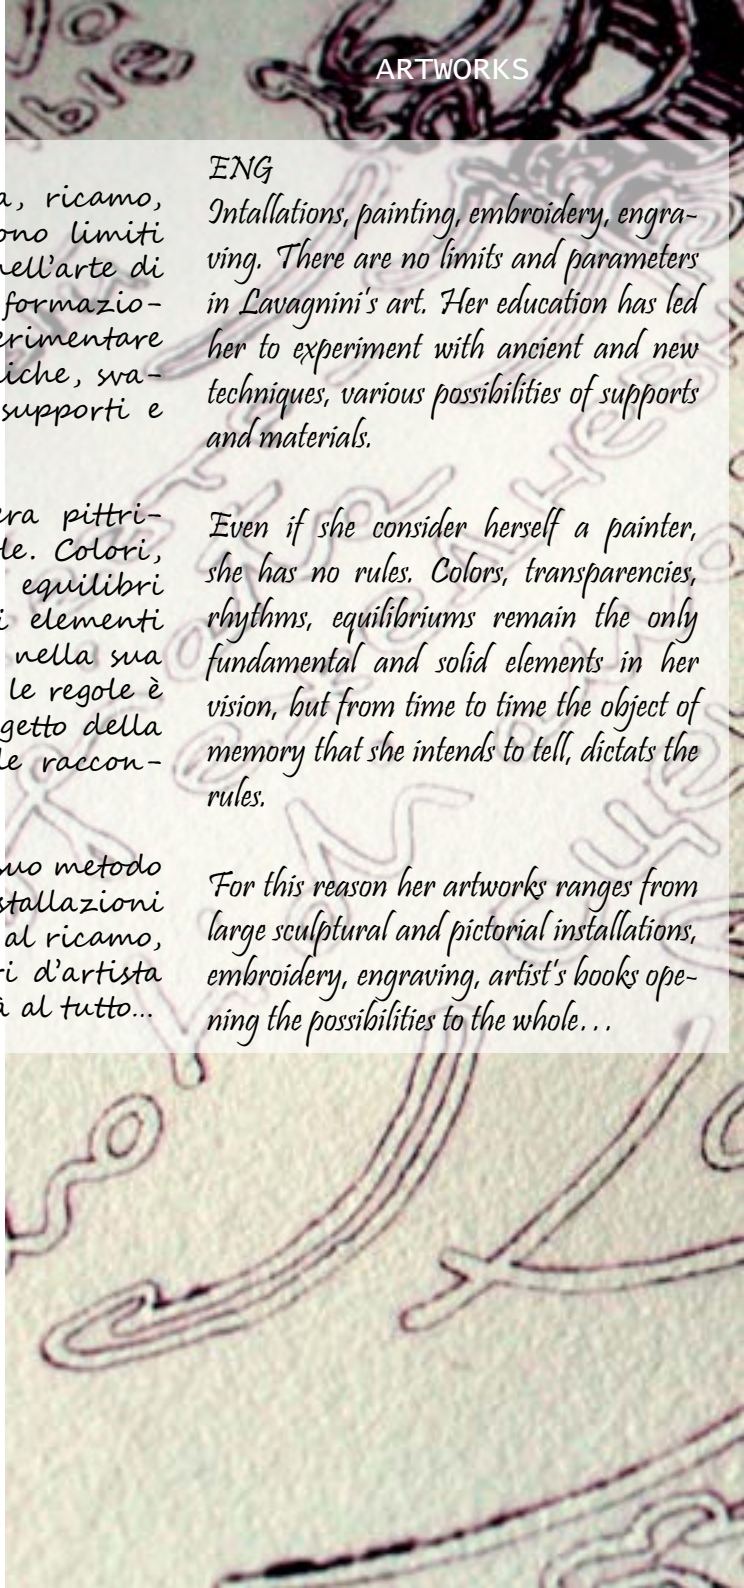 ARTWORKS
a, ricamo,
ono limiti
nell'arte di
formazio-
erimentare
iche, sva-
supporti e
era pittri-
le. Colori,
equilibri
i elementi
nella sua
le regole è
getto della
le raccon-
suo metodo
stallazioni
al ricamo,
ri d'artista
à al tutto...
ENG
Intallations, painting, embroidery, engra-
ving. There are no limits and parameters
in Lavagnini's art. Her education has led
her to experiment with ancient and new
techniques, various possibilities of supports
and materials.
Even if she consider herself a painter,
she has no rules. Colors, transparencies,
rhythms, equilibriums remain the only
fundamental and solid elements in her
vision, but from time to time the object of
memory that she intends to tell, dictats the
rules.
For this reason her artworks ranges from
large sculptural and pictorial installations,
embroidery, engraving, artist's books ope-
ning the possibilities to the whole...